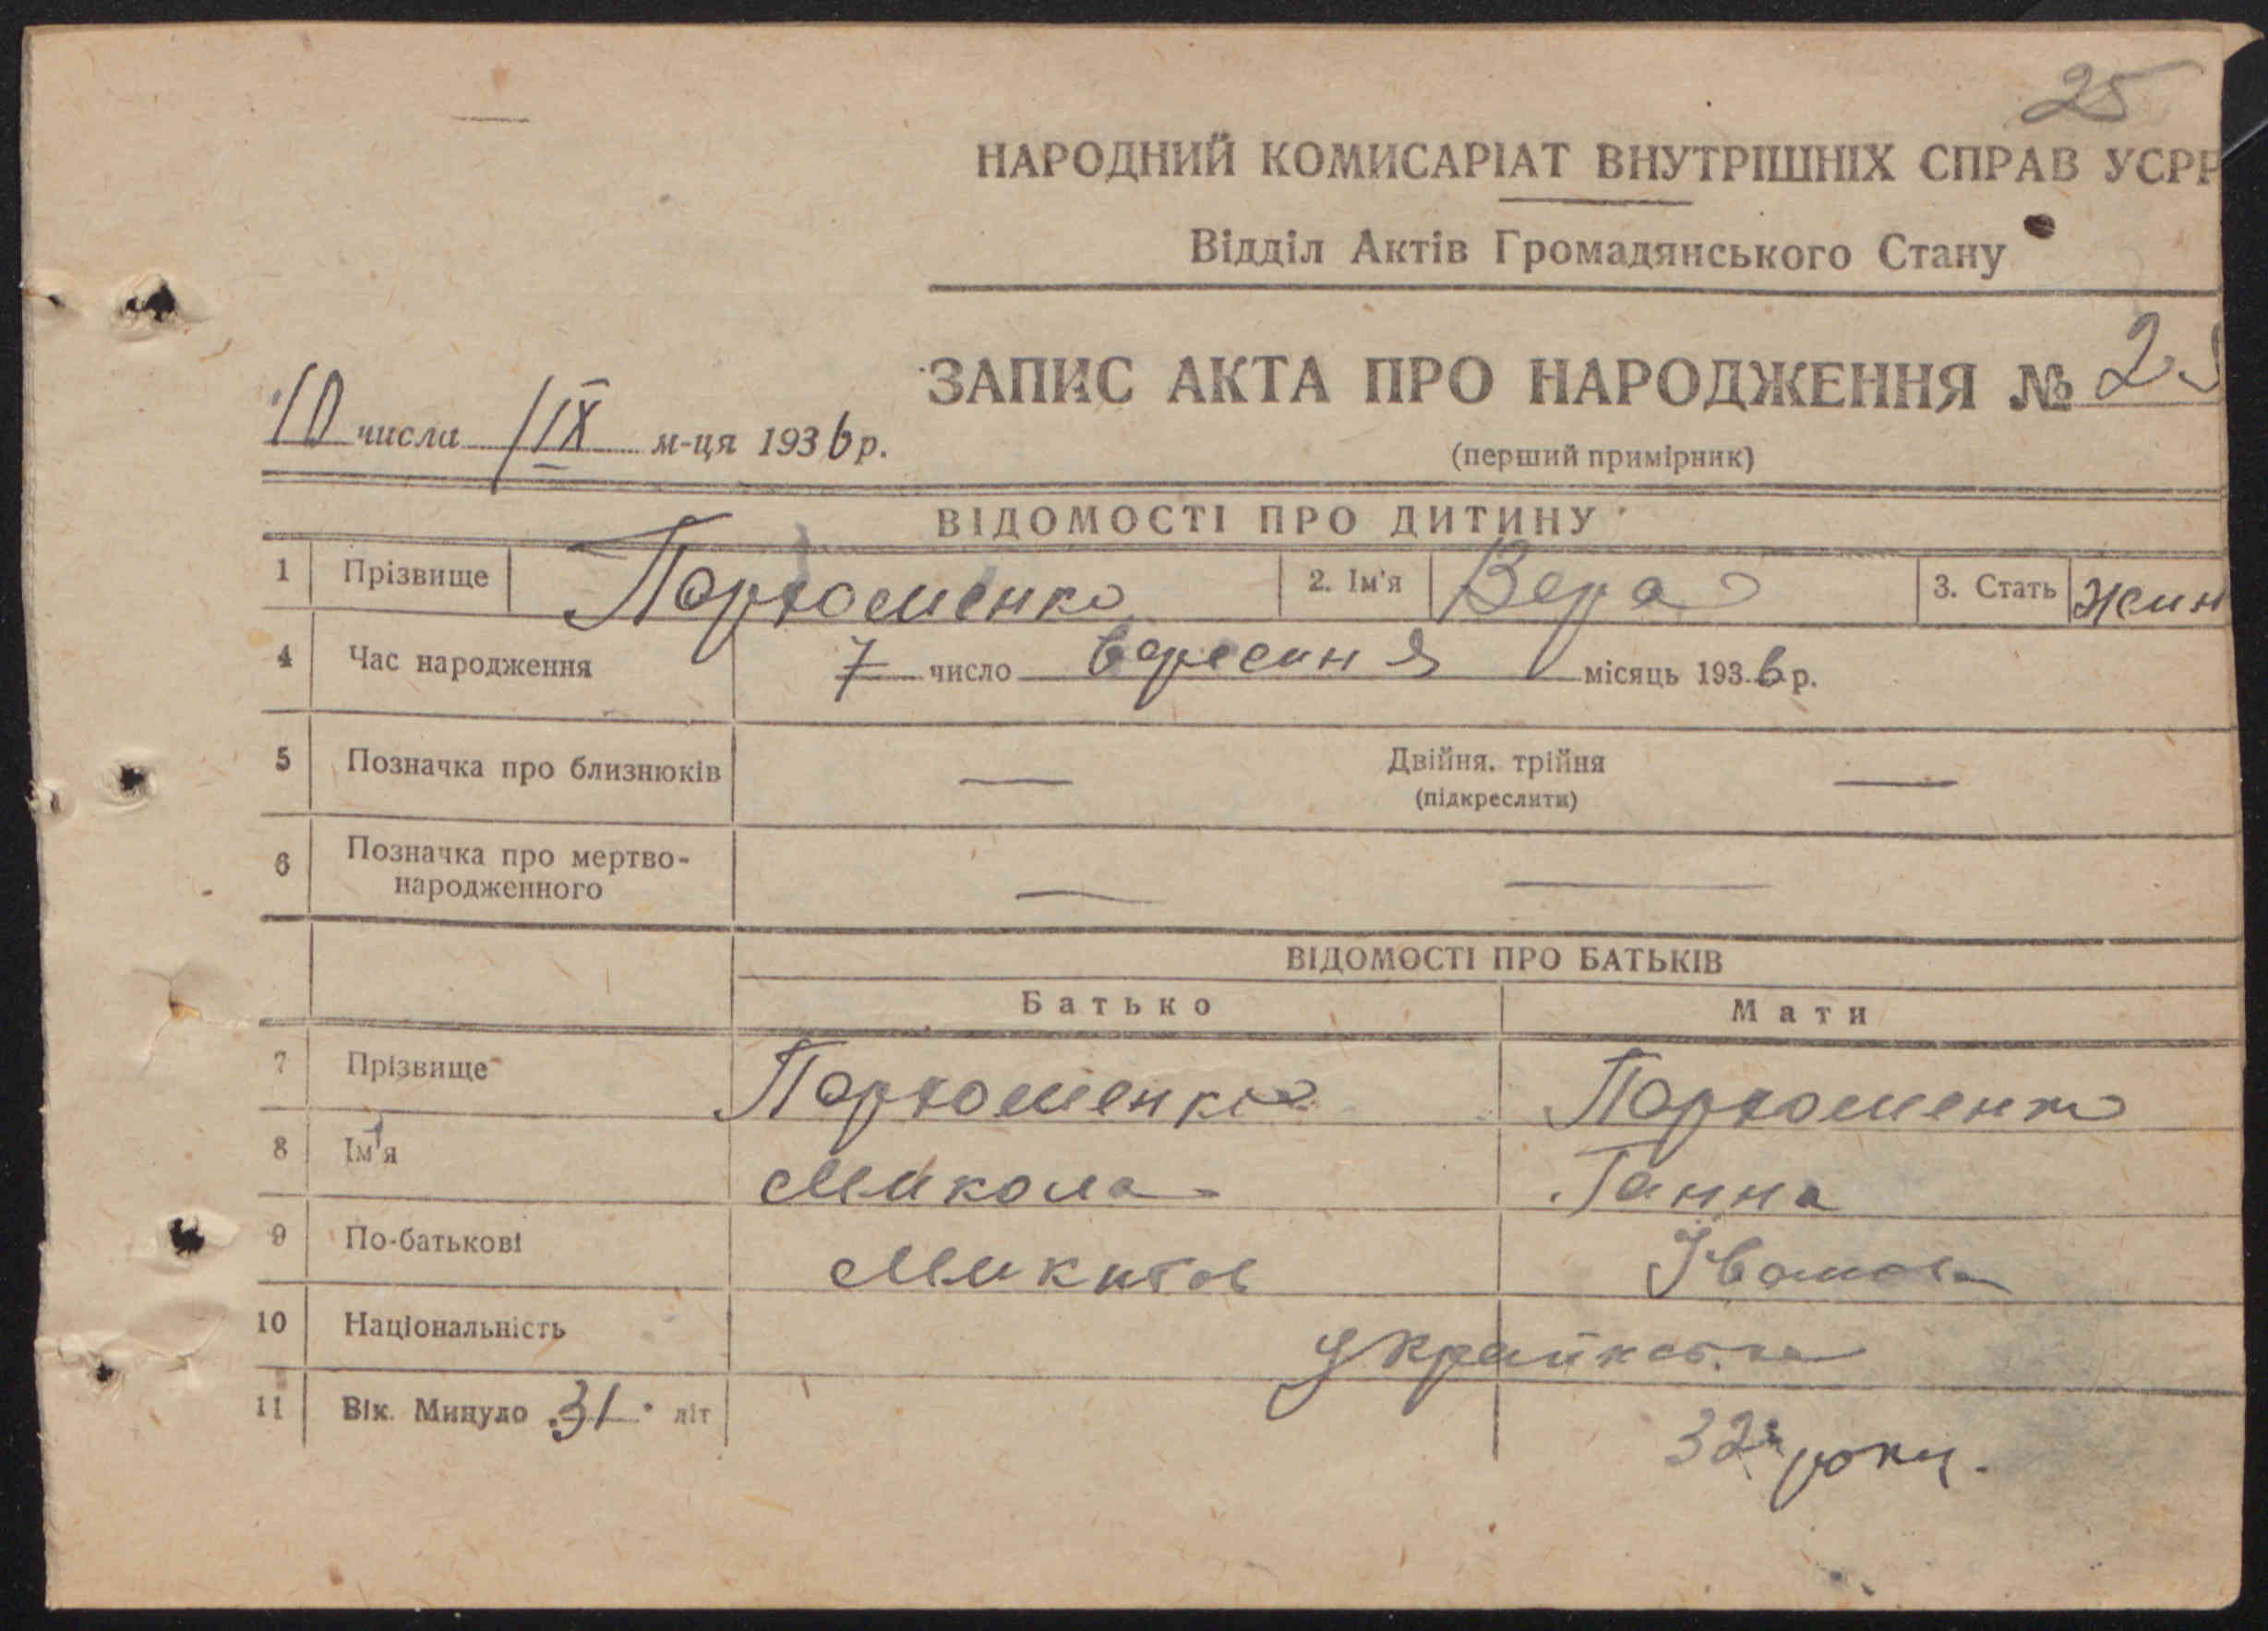 25
НАРОДНИЙ КОМИСАРІАТ ВНУТРІШНІХ СПРАВ УСРР
Відділ Актів Громадянського Стану
ЗАПИС АКТА ПРО НАРОДЖЕННЯ № 2
10 числа IX м-ця 1936 р.
(перший примірник)
ВІДОМОСТІ ПРО ДИТИНУ
1 Прізвище Пархоменко 2. Ім'я Вера 3. Стать жин
4 Час народження 7 число вересня місяць 1936 р.
5 Позначка про близнюків — Двійня, трійня —
(підкреслити)
6 Позначка про мертво-
народженного — —
ВІДОМОСТІ ПРО БАТЬКІВ
Батько Мати
7 Прізвище Пархоменко Пархоменко
8 Ім'я Микола Ганна
9 По-батькові Микитов Іванова
10 Національність
11 Вік. Минуло 31 літ 32 роки.